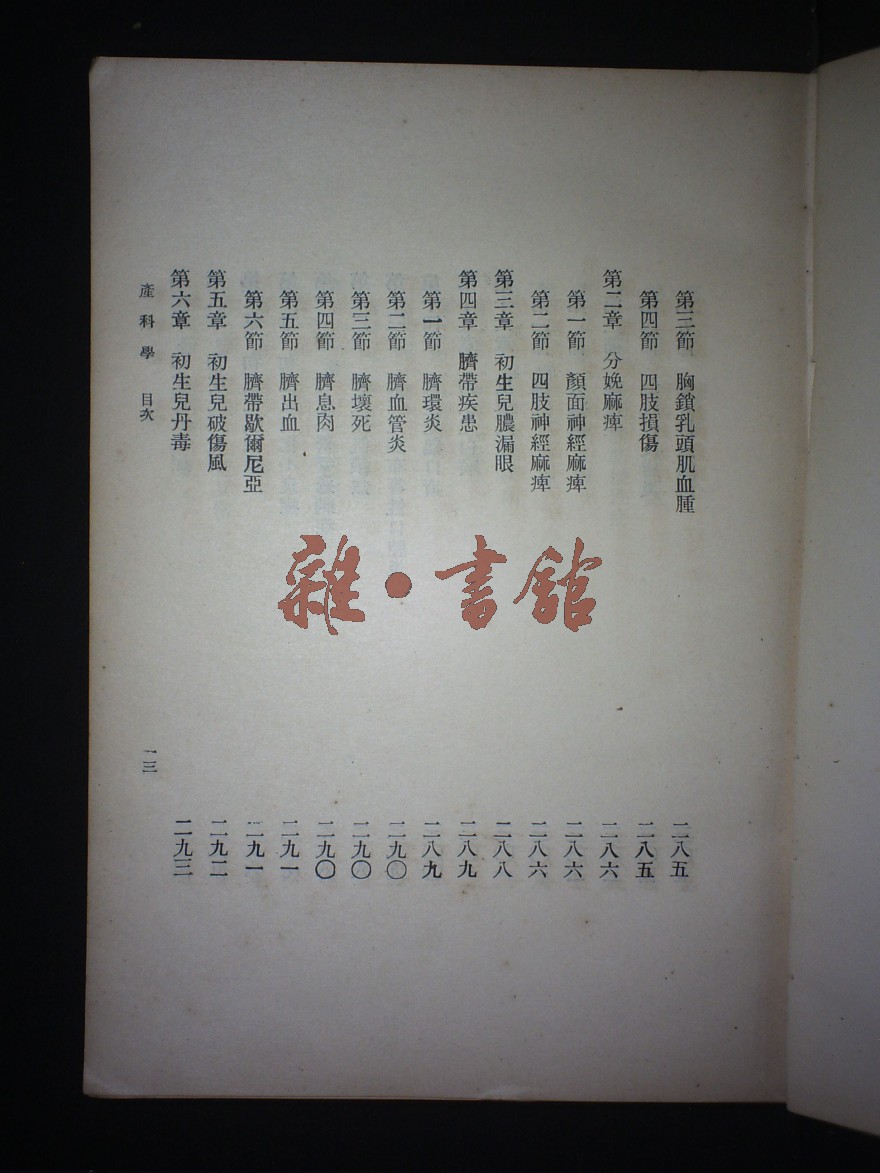 第三節　胸鎖乳頭肌血腫　二八五
第四節　四肢損傷　二八五
第二章　分娩麻痺　二八六
第一節　顏面神經麻痺　二八六
第二節　四肢神經麻痺　二八六
第三章　初生兒膿漏眼　二八八
第四章　臍帶疾患　二八九
第一節　臍環炎　二八九
第二節　臍血管炎　二九〇
第三節　臍壞死　二九〇
第四節　臍息肉　二九〇
第五節　臍出血　二九一
第六節　臍帶歇爾尼亞　二九一
第五章　初生兒破傷風　二九二
第六章　初生兒丹毒　二九三
產科學　目次　一三
雜·書館